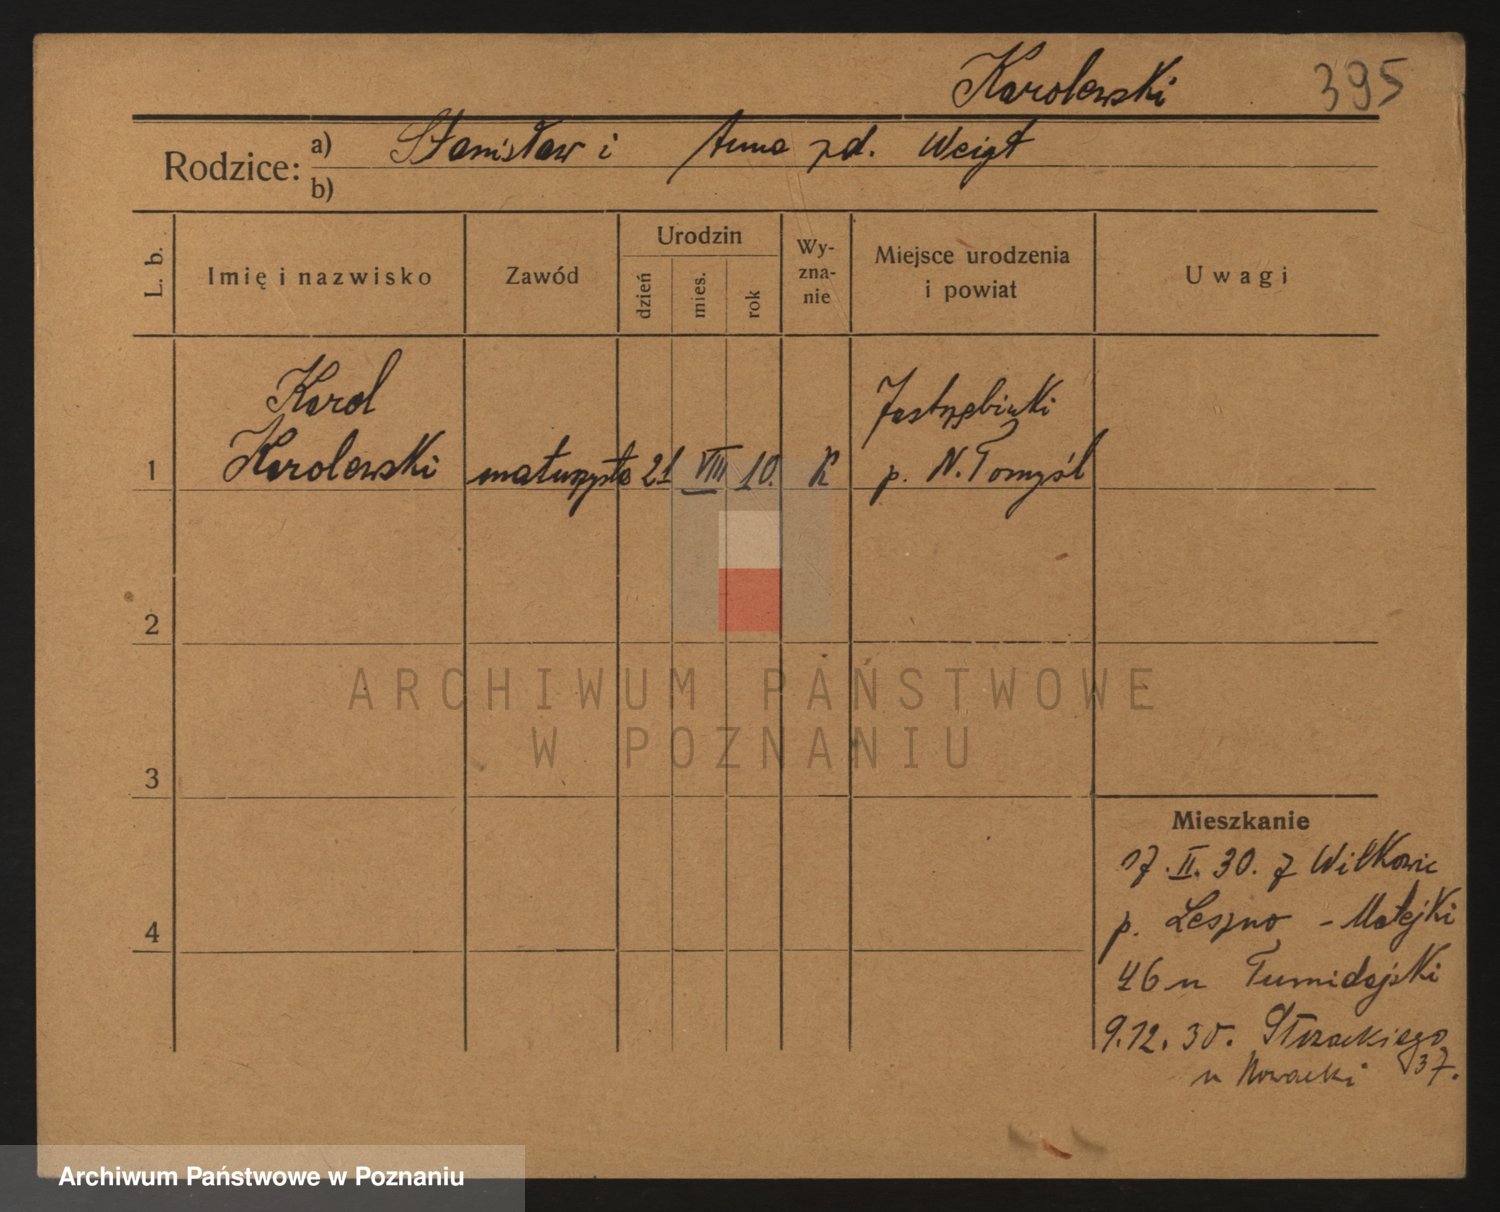 Karolewski 395
Rodzice: a) Stanisław i Anna zd. Weigt
b)
L. b. Imię i nazwisko Zawód Urodzin dzień mies. rok Wy-zna-nie Miejsce urodzenia i powiat Uwagi
Karol Jastrzębniki
1 Karolewski maturzysta 21 VIII 10. K p. N. Tomyśl
2
ARCHIWUM PAŃSTWOWE
W POZNANIU
3
Mieszkanie
17. II. 30. z Wilkowic
4 p. Leszno - Matejki
46 u Tumidajski
9.12.30. Strzałkiego
u Nowacki 37.
Archiwum Państwowe w Poznaniu